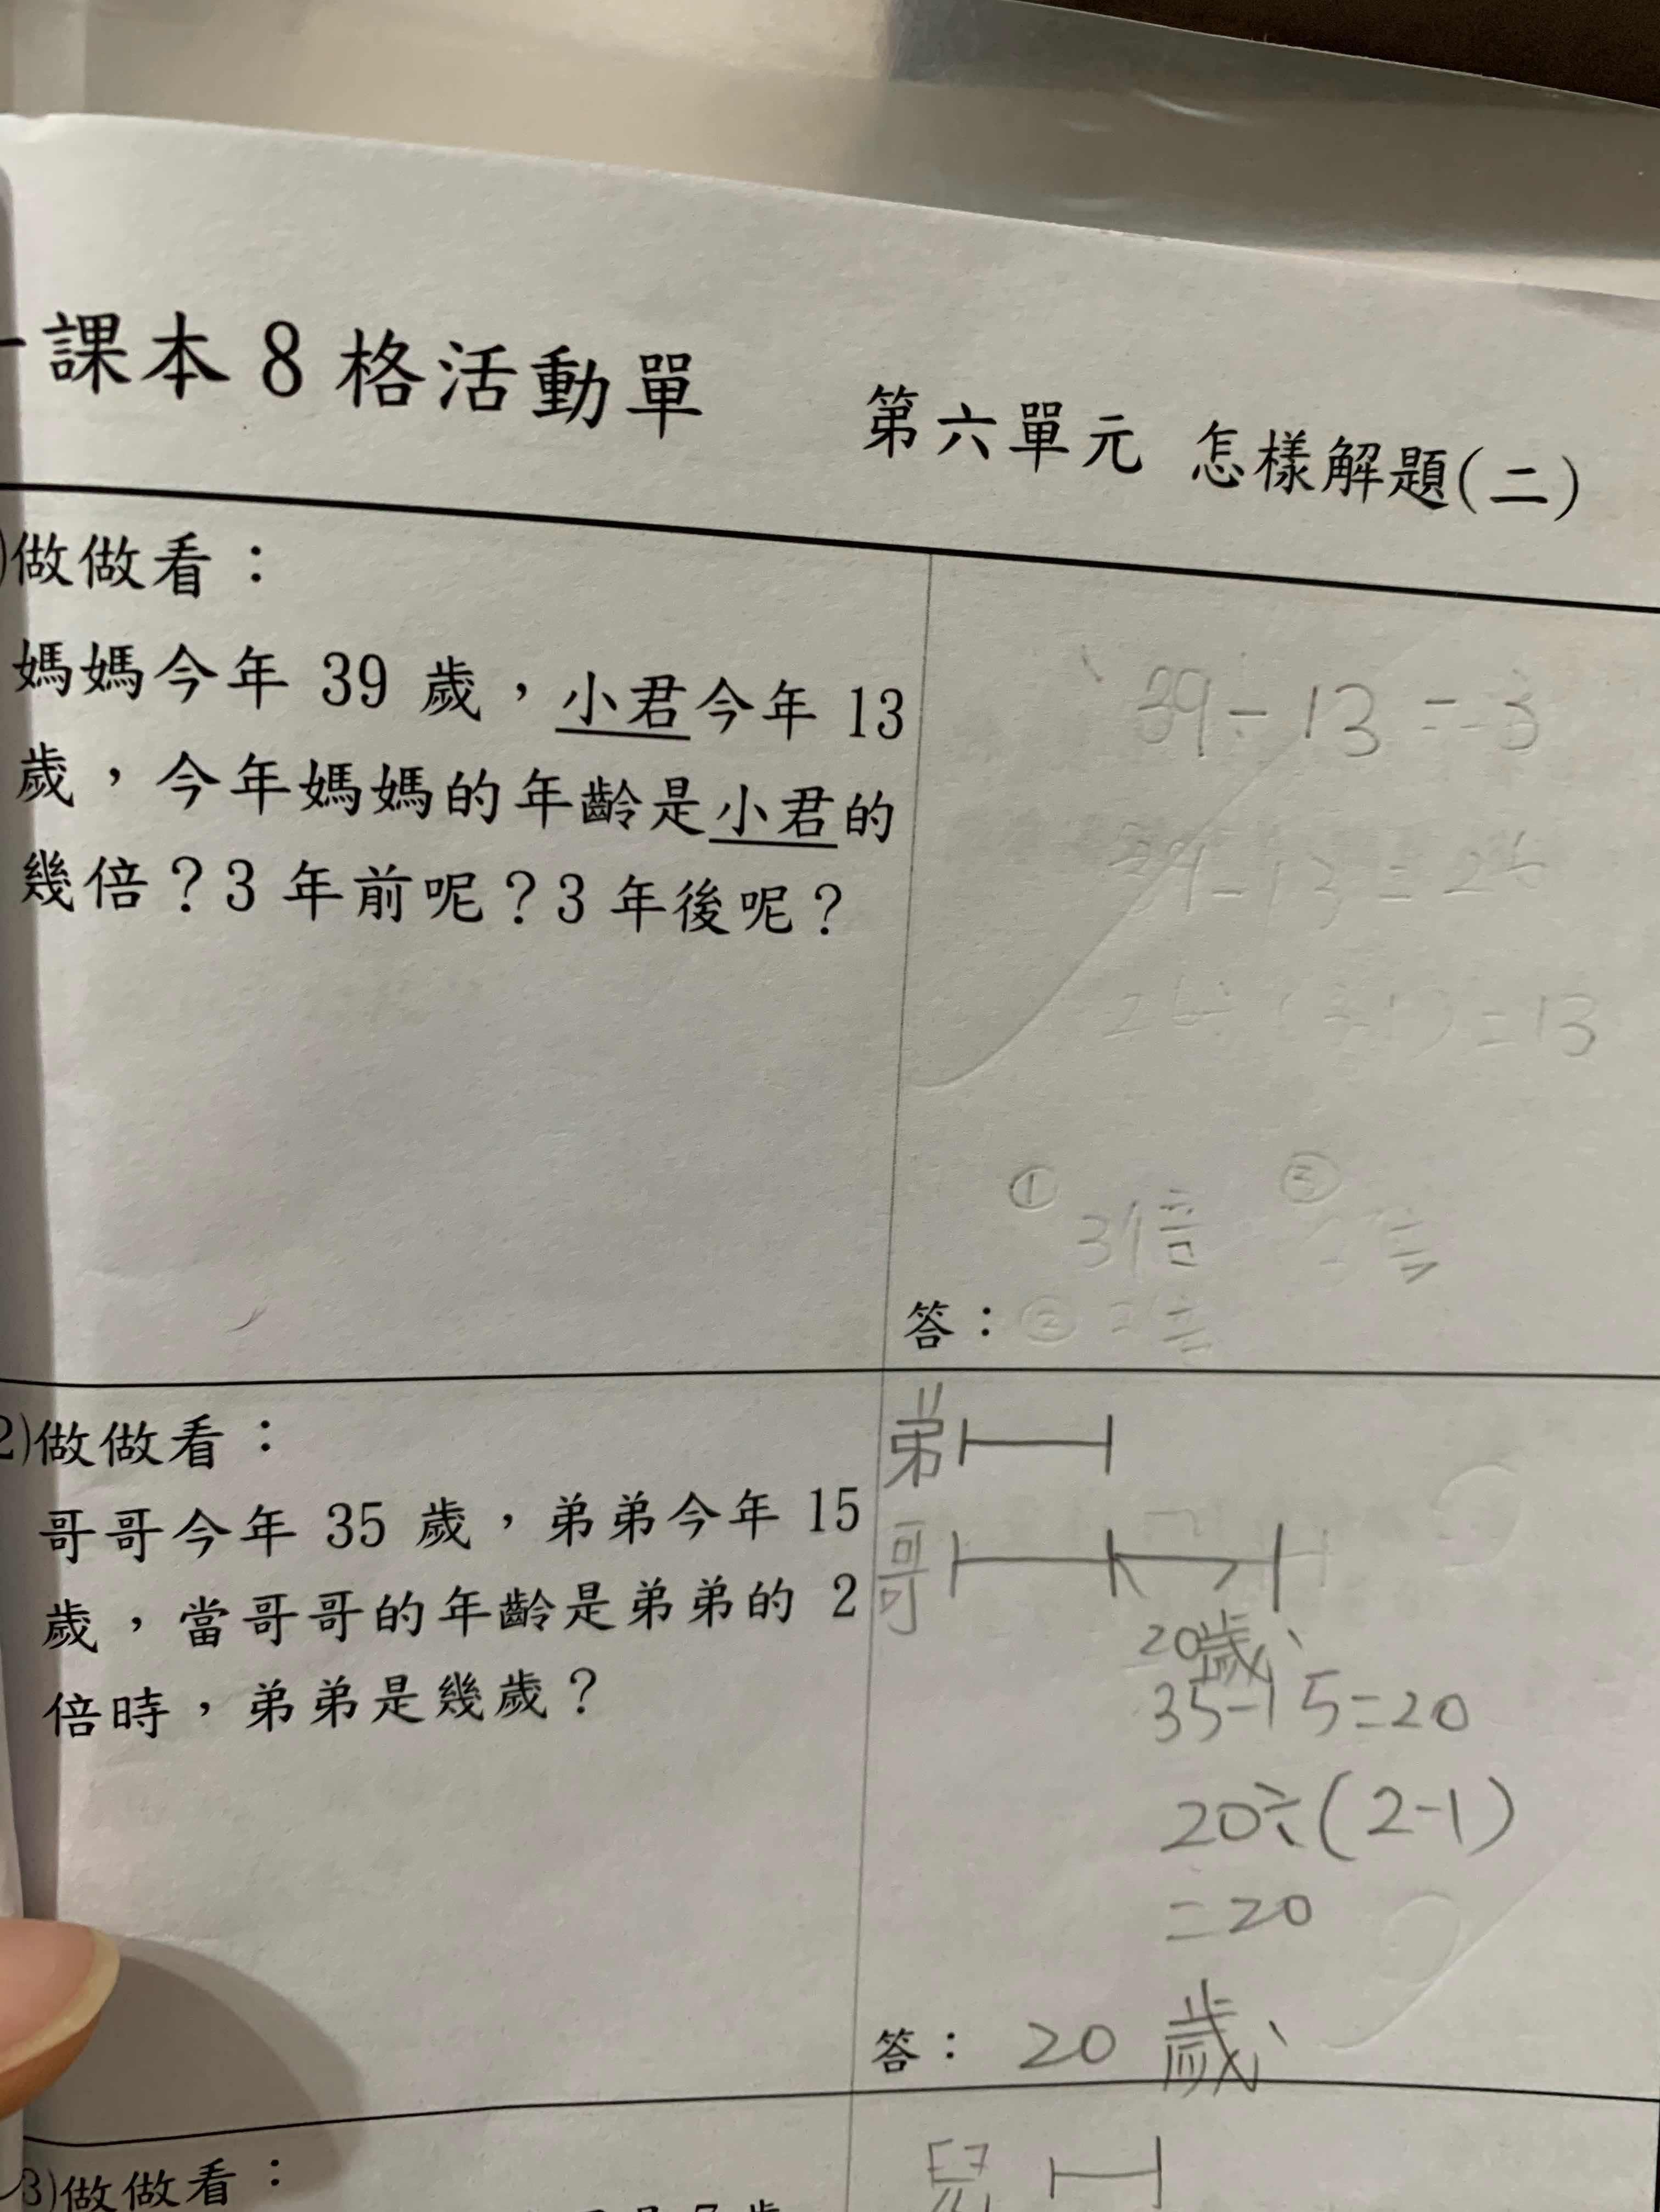 課本8格活動單 第六單元 怎樣解題(二)
)做做看：
媽媽今年 39 歲，小君今年 13
歲，今年媽媽的年齡是小君的
幾倍？3 年前呢？3 年後呢？
39÷13=3
39-13=26
=13
① 3倍 ③
答：②
2)做做看：
哥哥今年 35 歲，弟弟今年 15
歲，當哥哥的年齡是弟弟的 2
倍時，弟弟是幾歲？
弟
哥
20歲
35-15=20
20÷(2-1)
=20
答： 20 歲
3)做做看：
兒